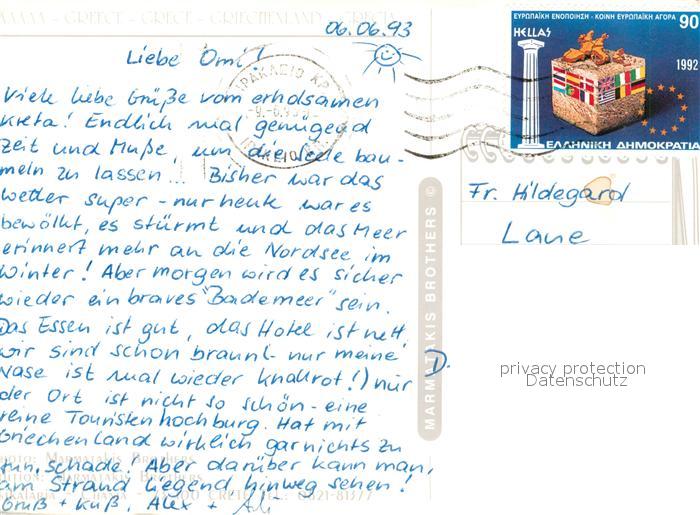 GREECE - GRECE - GRIECHENLAND - GRECIA
06.06.93
Liebe Omi!
Viele liebe Grüße vom erholsamen
Kreta! Endlich mal genügend
Zeit und Muße, um die Seele bau-
meln zu lassen... Bisher war das
Wetter super - nur heute war es
bewölkt, es stürmt und das Meer
erinnert mehr an die Nordsee im
Winter! Aber morgen wird es sicher
wieder ein braves "Bademeer" sein.
Das Essen ist gut, das Hotel ist nett,
wir sind schon braun(- nur meine
Nase ist mal wieder knallrot!) nur
der Ort ist nicht so schön - eine
reine Touristenhochburg. Hat mit
Griechenland wirklich gar nichts zu
tun, Schade! Aber darüber kann man,
am Strand liegend, hinweg sehen!
Gruß + Kuß, Alex +
PHOTO: MARMATAKIS BROTHERS
EDITION: MARMATAKIS BROTHERS
CHANIA - 73100 CRETE TEL.: 0821-81377
MARMATAKIS BROTHERS ©
D.
ΗΡΑΚΛΕΙΟ ΚΡ
ΕΥΡΩΠΑΪΚΗ ΕΝΟΠΟΙΗΣΗ - ΚΟΙΝΗ ΕΥΡΩΠΑΪΚΗ ΑΓΟΡΑ
90
HELLAS
1992
ΕΛΛΗΝΙΚΗ ΔΗΜΟΚΡΑΤΙΑ
Fr. Hildegard
Laue
privacy protection
Datenschutz